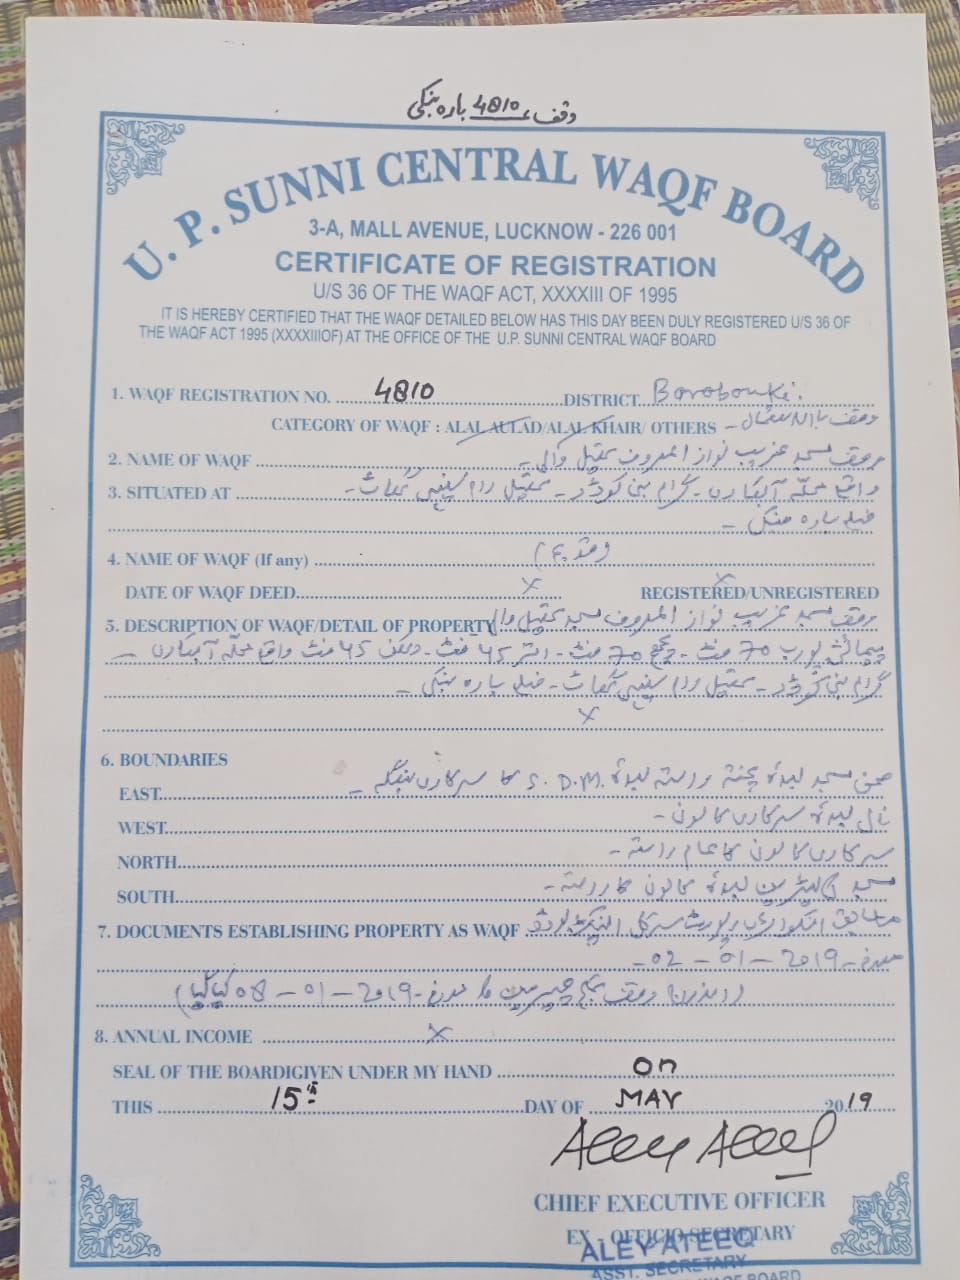 وقف 4810 بارہ بنکی
U. P. SUNNI CENTRAL WAQF BOARD
3-A, MALL AVENUE, LUCKNOW - 226 001
CERTIFICATE OF REGISTRATION
U/S 36 OF THE WAQF ACT, XXXXIII OF 1995
IT IS HEREBY CERTIFIED THAT THE WAQF DETAILED BELOW HAS THIS DAY BEEN DULY REGISTERED U/S 36 OF
THE WAQF ACT 1995 (XXXXIIIOF) AT THE OFFICE OF THE U.P. SUNNI CENTRAL WAQF BOARD
1. WAQF REGISTRATION NO. 4810 DISTRICT Barabanki.
CATEGORY OF WAQF : ALAL AULAD/ALAL KHAIR/ OTHERS وقف بالاستعمال
2. NAME OF WAQF وقف مسجد غریب نواز المعروف تحصیل والی
3. SITUATED AT واقع محلہ آبکاری - گرام بنی کوڈر - تحصیل رام سنیہی گھاٹ -
ضلع بارہ بنکی -
4. NAME OF WAQF (If any) (قدیم)
DATE OF WAQF DEED x REGISTERED/UNREGISTERED
5. DESCRIPTION OF WAQF/DETAIL OF PROPERTY وقف مسجد غریب نواز المعروف مسجد تحصیل والی
پیمائش پورب 70 فٹ - پچھم 70 فٹ - اتر 45 فٹ - دکھن 45 فٹ واقع محلہ آبکاری -
گرام بنی کوڈر - تحصیل رام سنیہی گھاٹ - ضلع بارہ بنکی -
x
6. BOUNDARIES
EAST صحن مسجد بعدہ پختہ راستہ بعدہ S.D.M. کا سرکاری بنگلہ -
WEST نالی بعدہ سرکاری کالونی -
NORTH سرکاری کالونی کا عام راستہ -
SOUTH مسجد کی لیٹرین بعدہ کالونی کا راستہ -
7. DOCUMENTS ESTABLISHING PROPERTY AS WAQF مطابق انکوائری رپورٹ سرکل انسپکٹر بورڈ
مورخہ 02-01-2019 -
(اندراج وقف بحکم چیرمین مورخہ 08-01-2019 کیا گیا)
8. ANNUAL INCOME x
SEAL OF THE BOARDIGIVEN UNDER MY HAND on
THIS 15th DAY OF MAY 2019
CHIEF EXECUTIVE OFFICER
EX - OFFICIO SECRETARY
ALEY ATEEQ
ASST. SECRETARY
WAQF BOARD